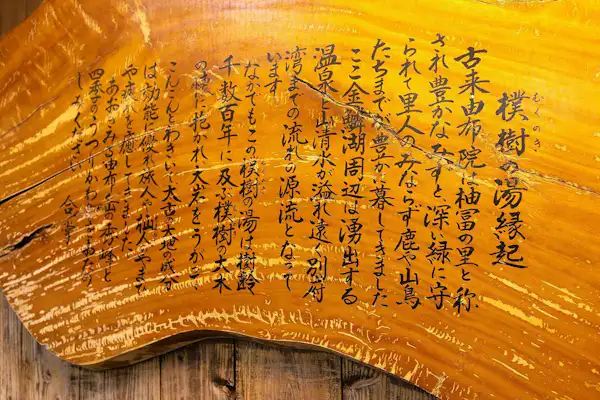 むくのき
樸樹の湯縁起
古来由布院は柚冨の里と称
され豊かなみずと深い緑に守
られて里人のみならず鹿や山鳥
たちまでが豊かに暮してきました
ここ金鱗湖周辺は湧出する
温泉と山清水が溢れ遠く別府
湾までの流れの源流となって
います
なかでもこの樸樹の湯は樹齢
千数百年に及ぶ樸樹の大木
の懐に抱かれ大岩をうがって
こんこんとわきいで太古大地の成分
は効能に優れ旅人や仙人
を癒してきました
由布の山の
四季のうつりかわりをおたの
しみください
合掌